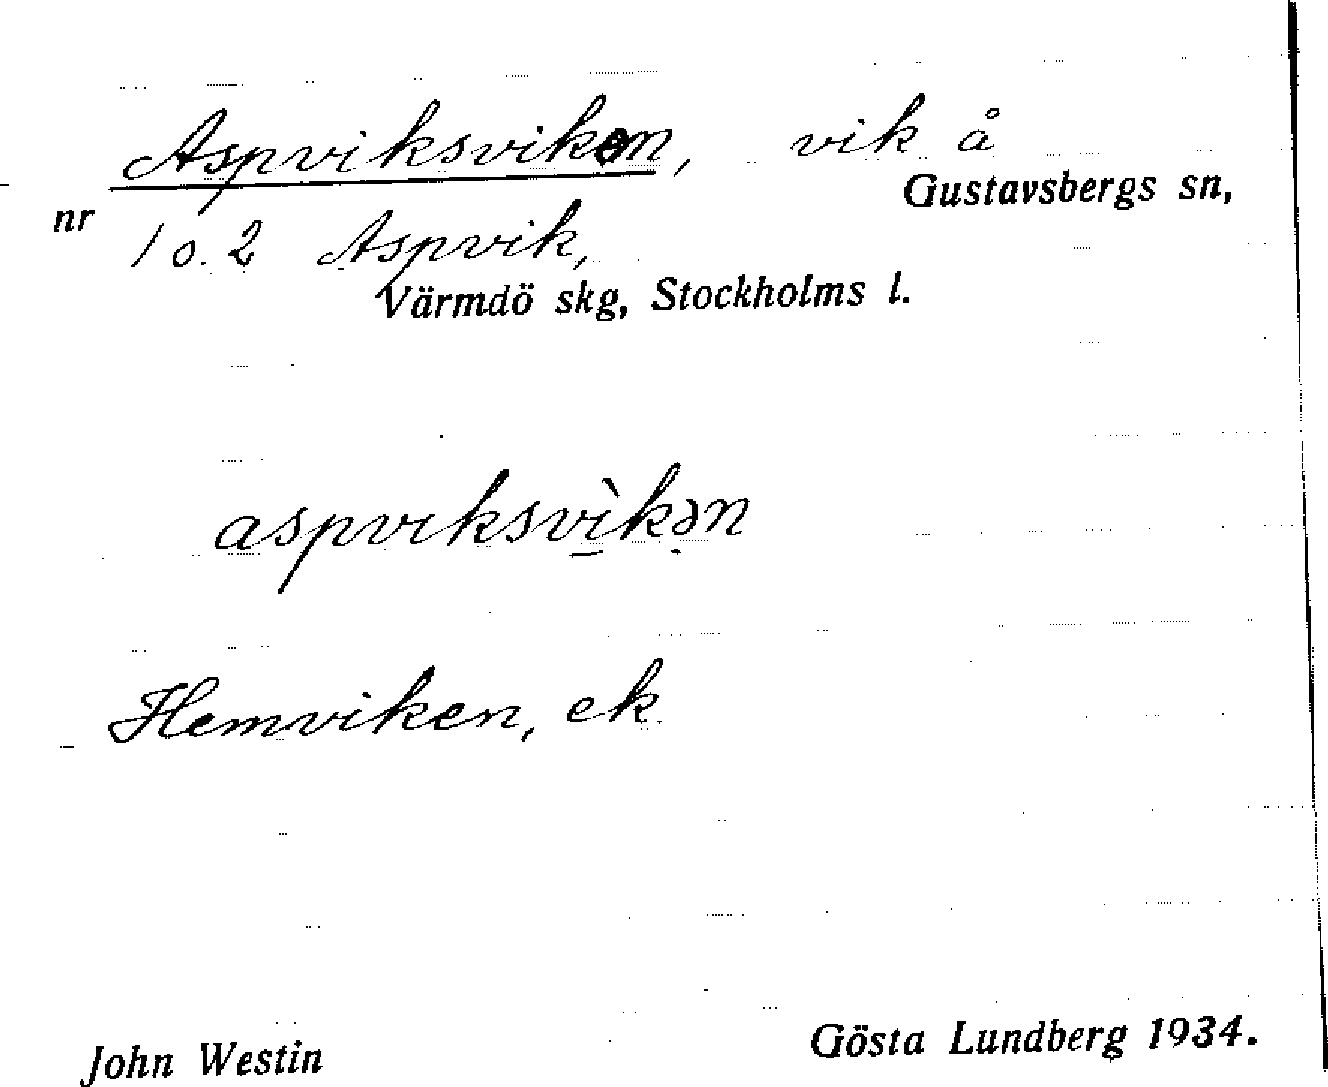 Aspviksviken, vik å
Gustavsbergs sn,
nr 1 o. 2 Aspvik,
Värmdö skg, Stockholms l.
aspviksvì̱kən
Hemviken, ek
John Westin
Gösta Lundberg 1934.